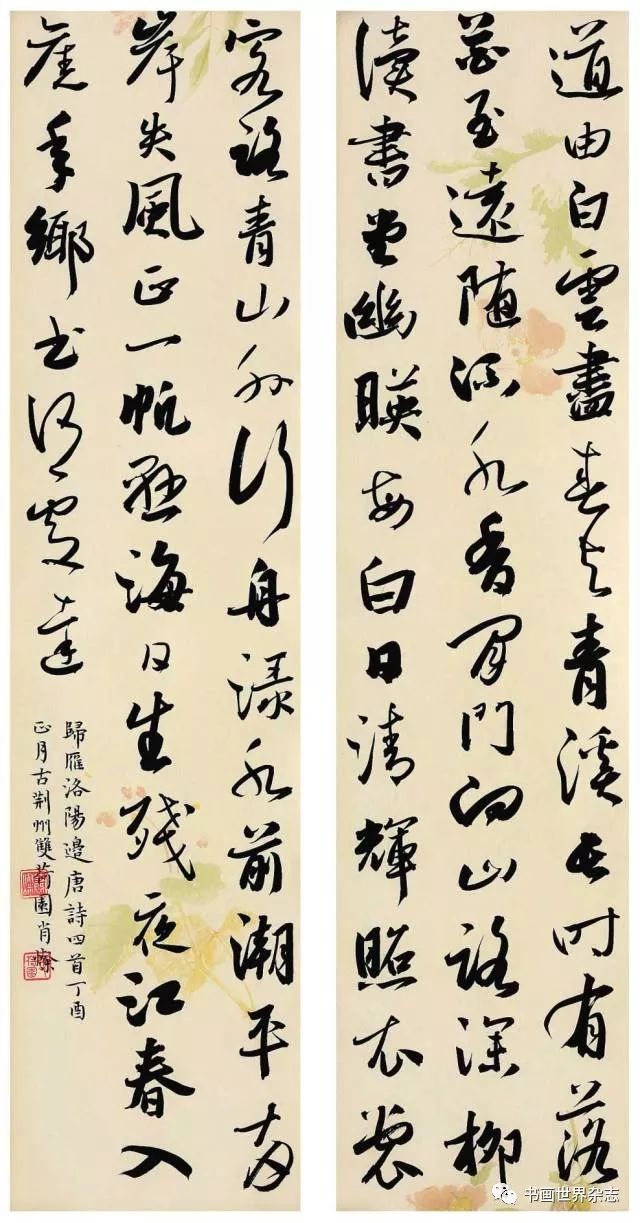 道由白雲盡春与青溪長时有落
花至遠随流水香閒門向山路深柳
讀書堂幽暎每白日清輝照衣裳
客路青山外行舟渌水前潮平两
岸失風正一帆懸海日生殘夜江春入
舊年鄉书何處達
歸雁洛陽邊唐詩四首丁酉
正月古荆州雙園肖
书画世界杂志